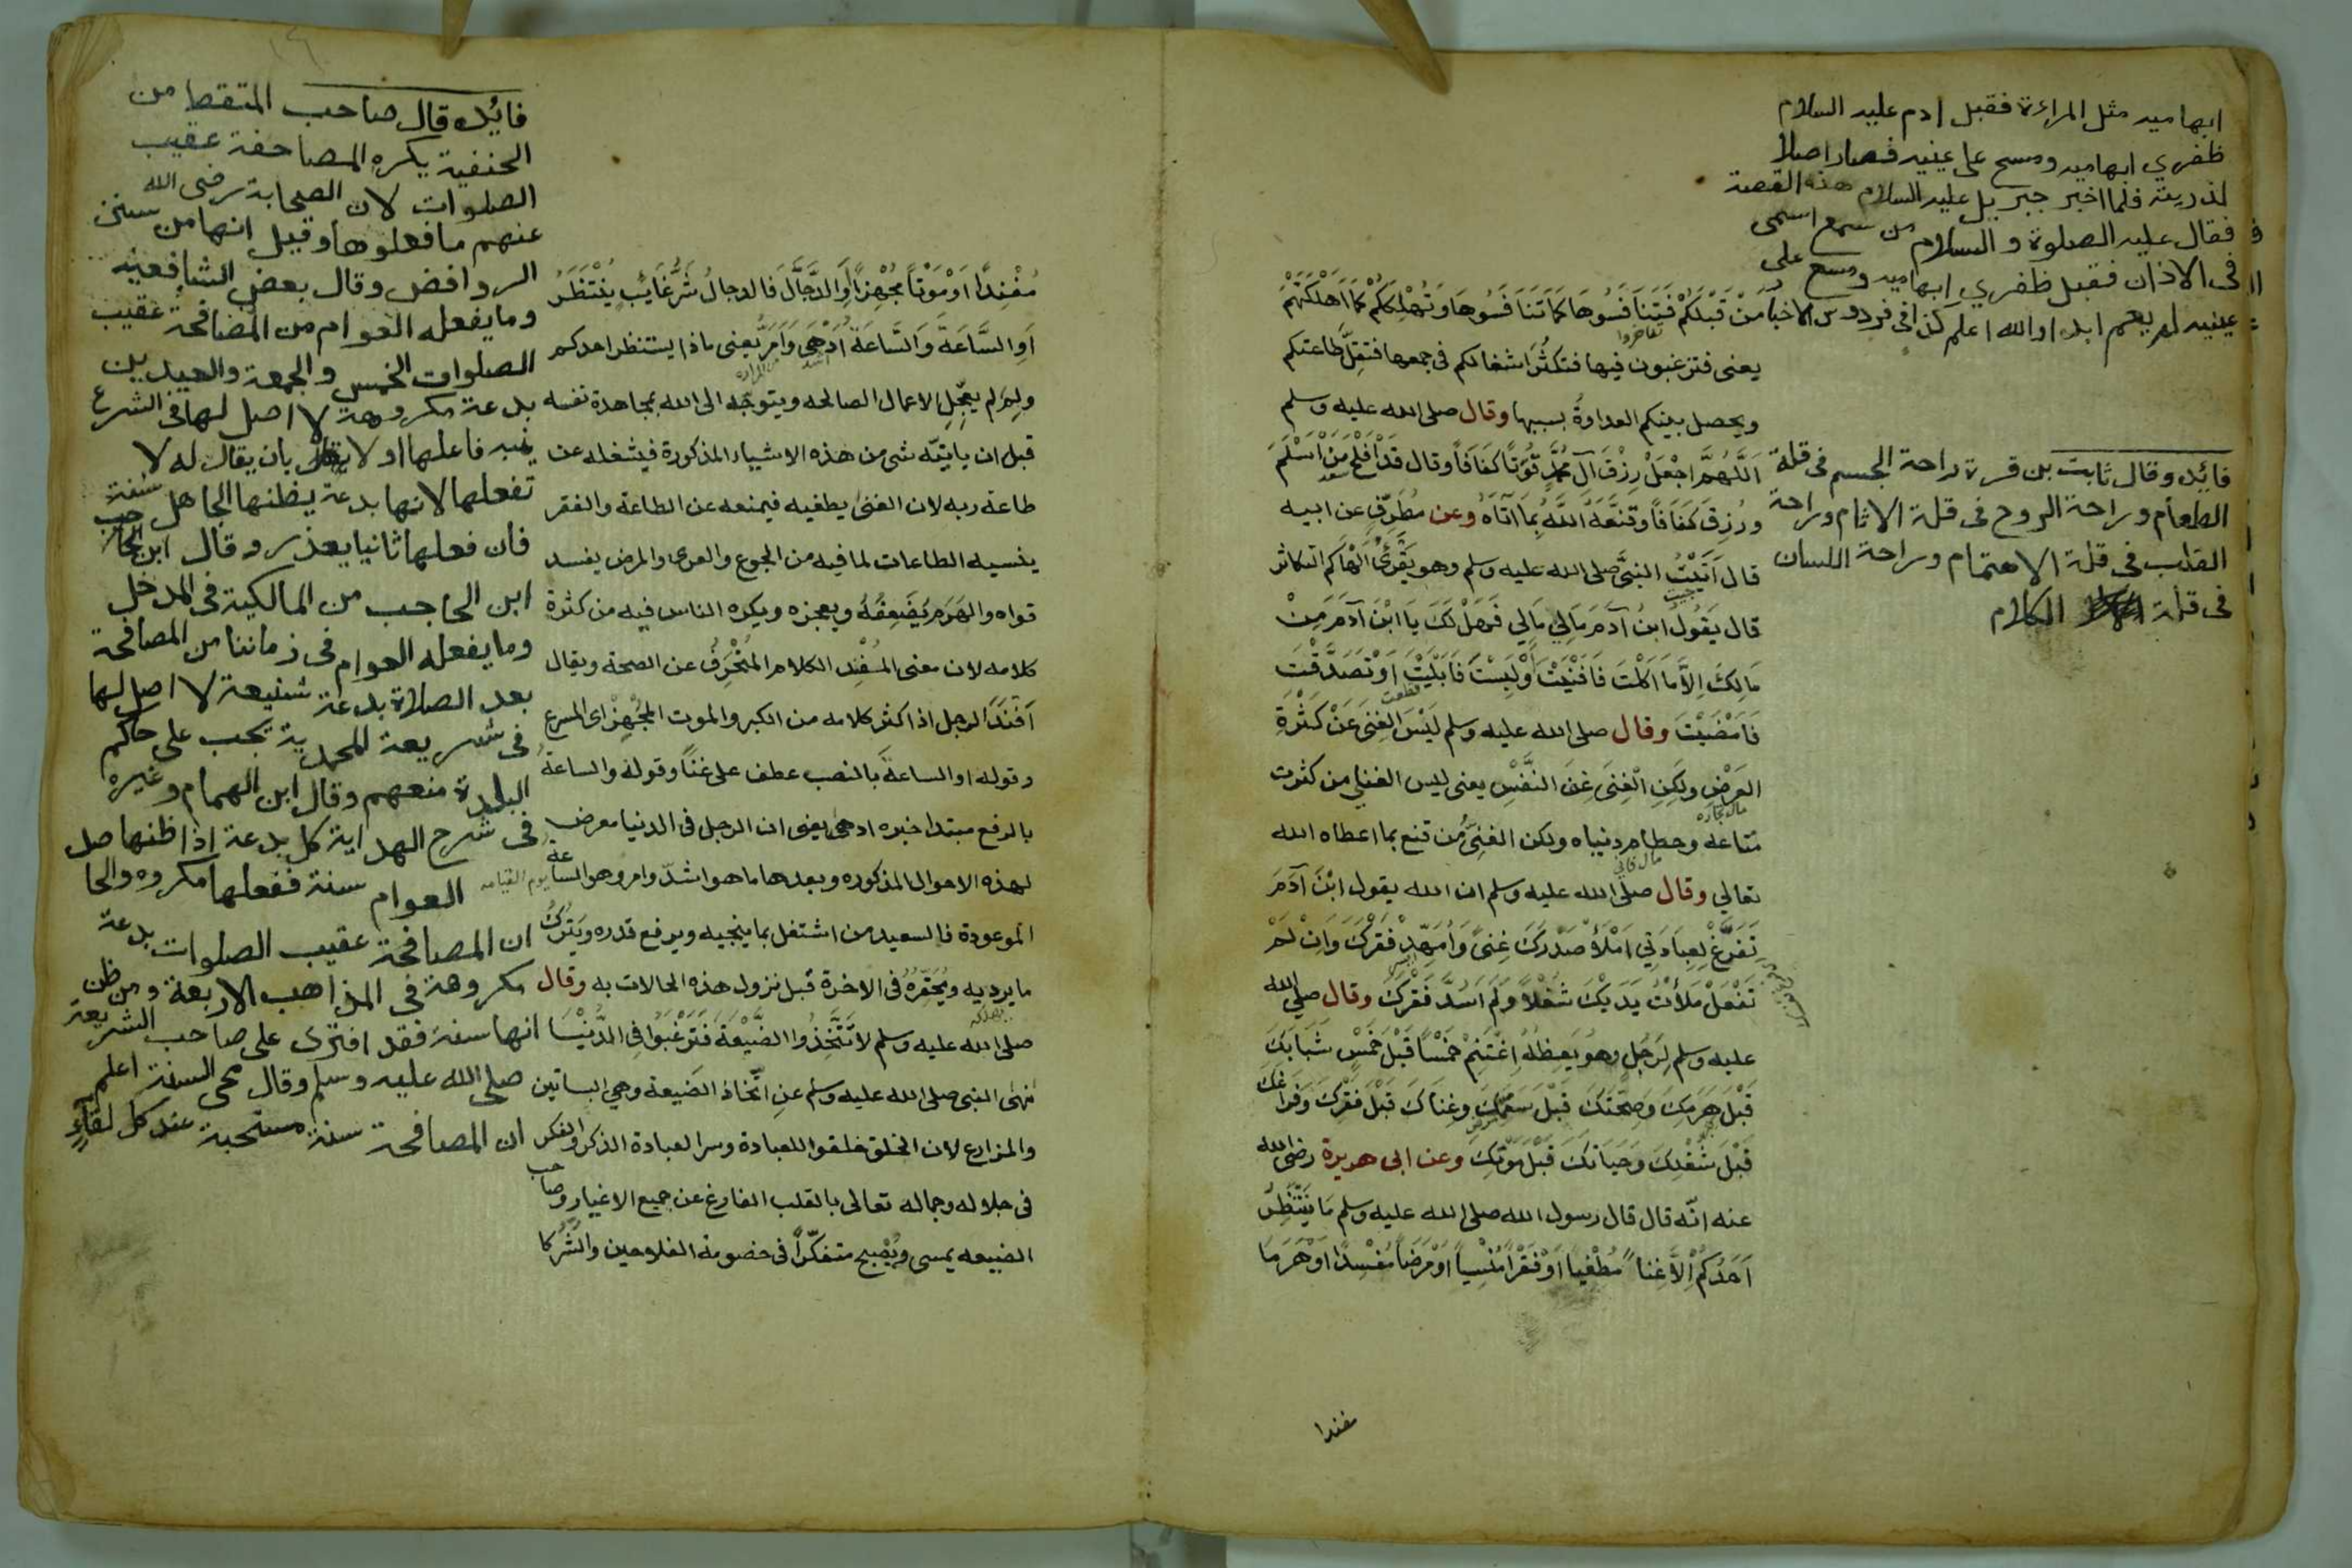 ابهاميه مثل المراءة فقبل ادم عليه السلام
ظفري ابهاميه ومسح على عينيه فصار اصلا
لذريته فلما اخبر جبريل عليه السلام هذه القصة
فقال عليه الصلوة والسلام من سمع اسمى
فى الاذان فقبل ظفري ابهاميه ومسح على
عينيه لم يعم ابدا والله اعلم كذا فى فردوس الاخبار
فائده وقال ثابت بن قرة راحة الجسم فى قلة
الطعام وراحة الروح فى قلة الاثام وراحة
القلب فى قلة الاهتمام وراحة اللسان
فى قلة الكلام
مَنْ قَبْلَكُمْ فَتَنَافَسُوهَا كَمَا تَنَافَسُوهَا وَتُهْلِكَكُمْ كَمَا اَهْلَكَتْهُمْ
يعنى فترغبون فيها فتكثُرَ اشغالكم فى جمعها فتقِلّ طاعتكم
ويحصل بينكم العداوةُ بسببها وقال صلى الله عليه وسلم
اَللَّهُمَّ اجْعَلْ رِزْقَ آلِ مُحَمَّدٍ قُوْتًا كَفَافًا وقال قَدْ اَفْلَحَ مَنْ اَسْلَمَ
ورُزِقَ كَفَافًا وَقَنَّعَهُ اللَّهُ بِمَا اتَاهُ وعن مُطَرِّفٍ عن ابيه
قال اَتَيْتُ النبيَّ صلى الله عليه وسلم وهو يَقْرَئُ اَلْهَاكُم التكاثر
قال يَقُولُ ابنُ آدَمَ مَالِي مَالِي فَهَلْ لَكَ يَا ابْنَ آدَمَ مِنْ
مَالِكَ اِلَّا مَا اَكَلْتَ فَاَفْنَيْتَ اَوْ لَبِسْتَ فَاَبْلَيْتَ اَوْ تَصَدَّقْتَ
فَاَمْضَيْتَ وقال صلى الله عليه وسلم لَيْسَ الغِنَى عَنْ كَثْرَةِ
العَرَضِ ولَكِنِ الْغِنَى غِنَى النَّفْسِ يعنى ليس الغنا من كثرت
متاعه وحطام دنياه ولكن الغنِىُّ من قنع بما اعطاه الله
تعالي وقال صلى الله عليه وسلم ان الله يقول ابْنَ آدَمَ
تَفَرَّغْ لِعِبَادَتِي اَمْلَأْ صَدْرَكَ غِنىً وَاَسُدَّ فَقْرَكَ وَاِنْ لَمْ
تَفْعَلْ مَلَأْتُ يَدَيْكَ شُغْلًا وَلَمْ اَسُدَّ فَقْرَكَ وقال صلى الله
عليه وسلم لِرَجُلٍ وهو يَعِظُهُ اِغْتَنِمْ خَمْسًا قَبْلَ خَمْسٍ شَبَابَكَ
قَبْلَ هَرَمِكَ وَصِحَّتَكَ قَبْلَ سَقَمِكَ وغِنَاكَ قَبْلَ فَقْرِكَ وَفَرَاغَكَ
قَبْلَ شُغْلِكَ وَحَيَاتَكَ قَبْلَ مَوْتِكَ وعن ابى هريرة رضى الله
عنه انّه قال قال رسول الله صلى الله عليه وسلم مَا يَنْتَظِرُ
اَحَدُكُمْ اِلَّا غِنًا مُطْغِيًا اَوْ فَقْرًا مُنْسِيًا اَوْ مَرَضًا مُفْسِدًا اَوْ هَرَمًا
مفندا
مُفْنِدًا اَوْ مَوْتًا مُجْهِزًا اَوِ الدَّجَّالَ فَالدجالُ شَرُّ غَائِبٍ يُنْتَظَرُ
اَوِ السَّاعَةَ وَالسَّاعَةُ اَدْهَى وَاَمَرُّ يعنى ماذا ينتظر احدكم
ولِمَ لم يعجّلِ الاعمال الصالحه ويتوجّه الى الله بمجاهدة نفسه
قبل ان ياتيَه شى من هذه الاشياء المذكورة فيشغله عن
طاعة ربه لان الغنى يطغيه فيمنعه عن الطاعة والفقر
ينسيه الطاعات لما فيه من الجوع والعرى والمرض يفسد
قواه والهَرَم يُضَعِفُهُ ويعجزه ويكره الناس فيه من كثرة
كلامه لان معنى المُفْنِد الكلام المُنْحَرِفُ عن الصحة ويقال
اَفْنَدَ الرجل اذا كثر كلامه من الكبر والموت المُجْهِز اى المسرع
وقوله او الساعةَ بالنصب عطف على غنًا وقوله والساعةُ
بالرفع مبتدا خبره ادهى يعنى ان الرجل فى الدنيا معرض
لهذه الاحوال المذكوره وبعدها ما هو اشدّ وامر وهو الساعة
يوم القيامه
الموعودة فالسعيد من اشتغل بما ينجيه ويرفع قدره ويَتْرُكُ
ما يرديه ويُحَقِّرُهُ فى الاخرة قبل نزول هذه الحالات به وقال
صلى الله عليه وسلم لَا تَتَّخِذُوا الضَّيْعَةَ فَتَرْغَبُوا فِى الدُّنْيَا
نهى النبى صلى الله عليه وسلم عنِ اتّخاذ الضيعة وهي البساتين
والمزارع لان الخلق خلقوا للعبادة وسر العبادة الذكر والفكر
فى جلاله وجماله تعالى بالقلب الفارغ عن جميع الاغيار وصاحب
الضيعه يمسى ويُصْبِح متفكّرًا فى خصومة الفلاحين والشُّرَكا
فائده قال صاحب الملتقط من
الحنفية يكره المصافحة عقيب
الصلوات لان الصحابة رضى الله
عنهم ما فعلوها وقيل انها من سنن
الروافض وقال بعض الشافعيه
وما يفعله العوام من المصافحة عقيب
الصلوات الخمس والجمعة والعيدين
بدعة مكروهة لا اصل لها فى الشرع
فاعلها اولا بان يقال له لا
تفعلها لانها بدعة يظنها الجاهل سنة
فان فعلها ثانيا يعذر وقال
ابن الحاجب من المالكية فى المدخل
وما يفعله العوام فى زماننا من المصافحة
بعد الصلاة بدعة شنيعة لا اصل لها
فى شريعة المحمدية يجب على حاكم
البلدة منعهم وقال ابن الهمام وغيره
فى شرح الهداية كل بدعة اذا ظنها
العوام سنة ففعلها مكروه والحا صل
ان المصافحة عقيب الصلوات بدعة
مكروهة فى المذاهب الاربعة ومن ظن
انها سنة فقد افترى على صاحب الشريعة
صلى الله عليه وسلم وقال محى السنة اعلم
ان المصافحة سنة مستحبة عند كل لقاءٍ